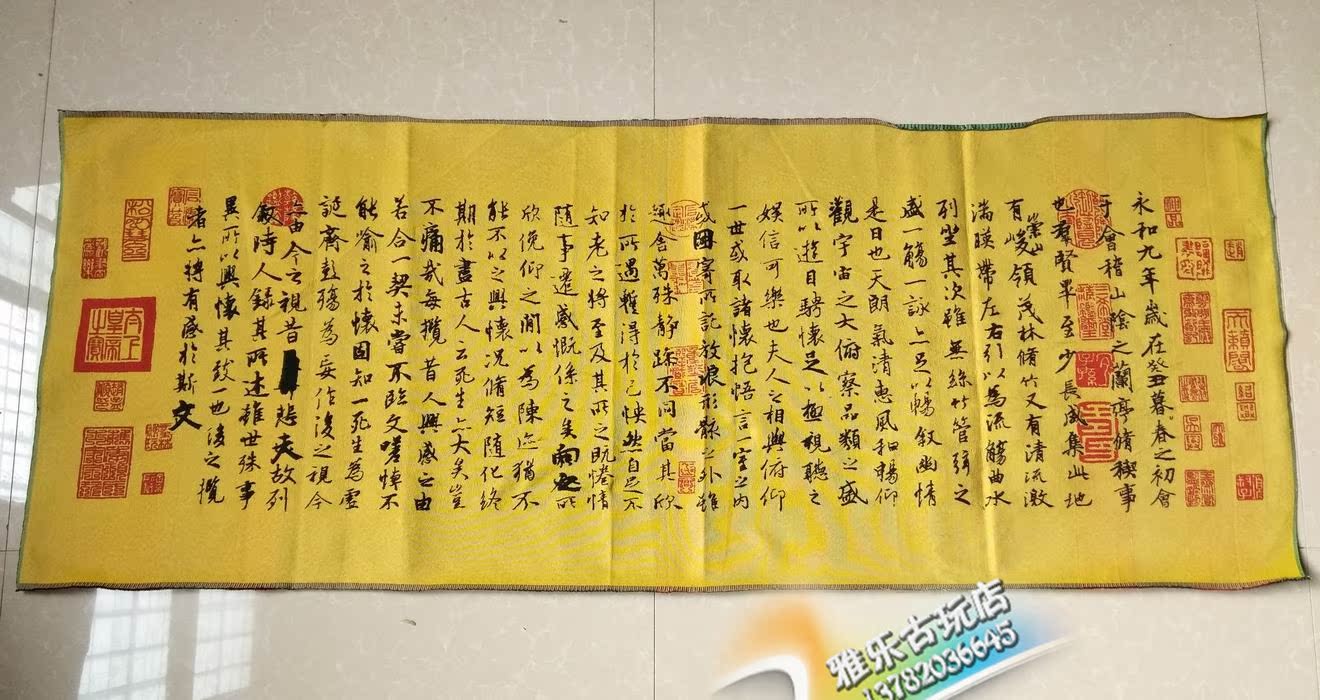 永和九年歲在癸丑暮春之初會
于會稽山陰之蘭亭脩稧事
也羣賢畢至少長咸集此地
有崇山峻領茂林脩竹又有清流激
湍暎帶左右引以為流觴曲水
列坐其次雖無絲竹管弦之
盛一觴一詠亦足以暢叙幽情
是日也天朗氣清惠風和暢仰
觀宇宙之大俯察品類之盛
所以遊目騁懷足以極視聽之
娛信可樂也夫人之相與俯仰
一世或取諸懷抱悟言一室之內
或因寄所託放浪形骸之外雖
趣舍萬殊静躁不同當其欣
於所遇暫得於己怏然自足不
知老之將至及其所之既惓情
隨事遷感慨係之矣向之所
欣俛仰之閒以為陳迹猶不
能不以之興懷況脩短隨化終
期於盡古人云死生亦大矣豈
不痛哉每攬昔人興感之由
若合一契未嘗不臨文嗟悼不
能喻之於懷固知一死生為虛
誕齊彭殤為妄作後之視今
亦由今之視昔悲夫故列
敘時人錄其所述雖世殊事
異所以興懷其致一也後之攬
者亦將有感於斯文
太上皇帝之寶
雅乐古玩店
13782036645